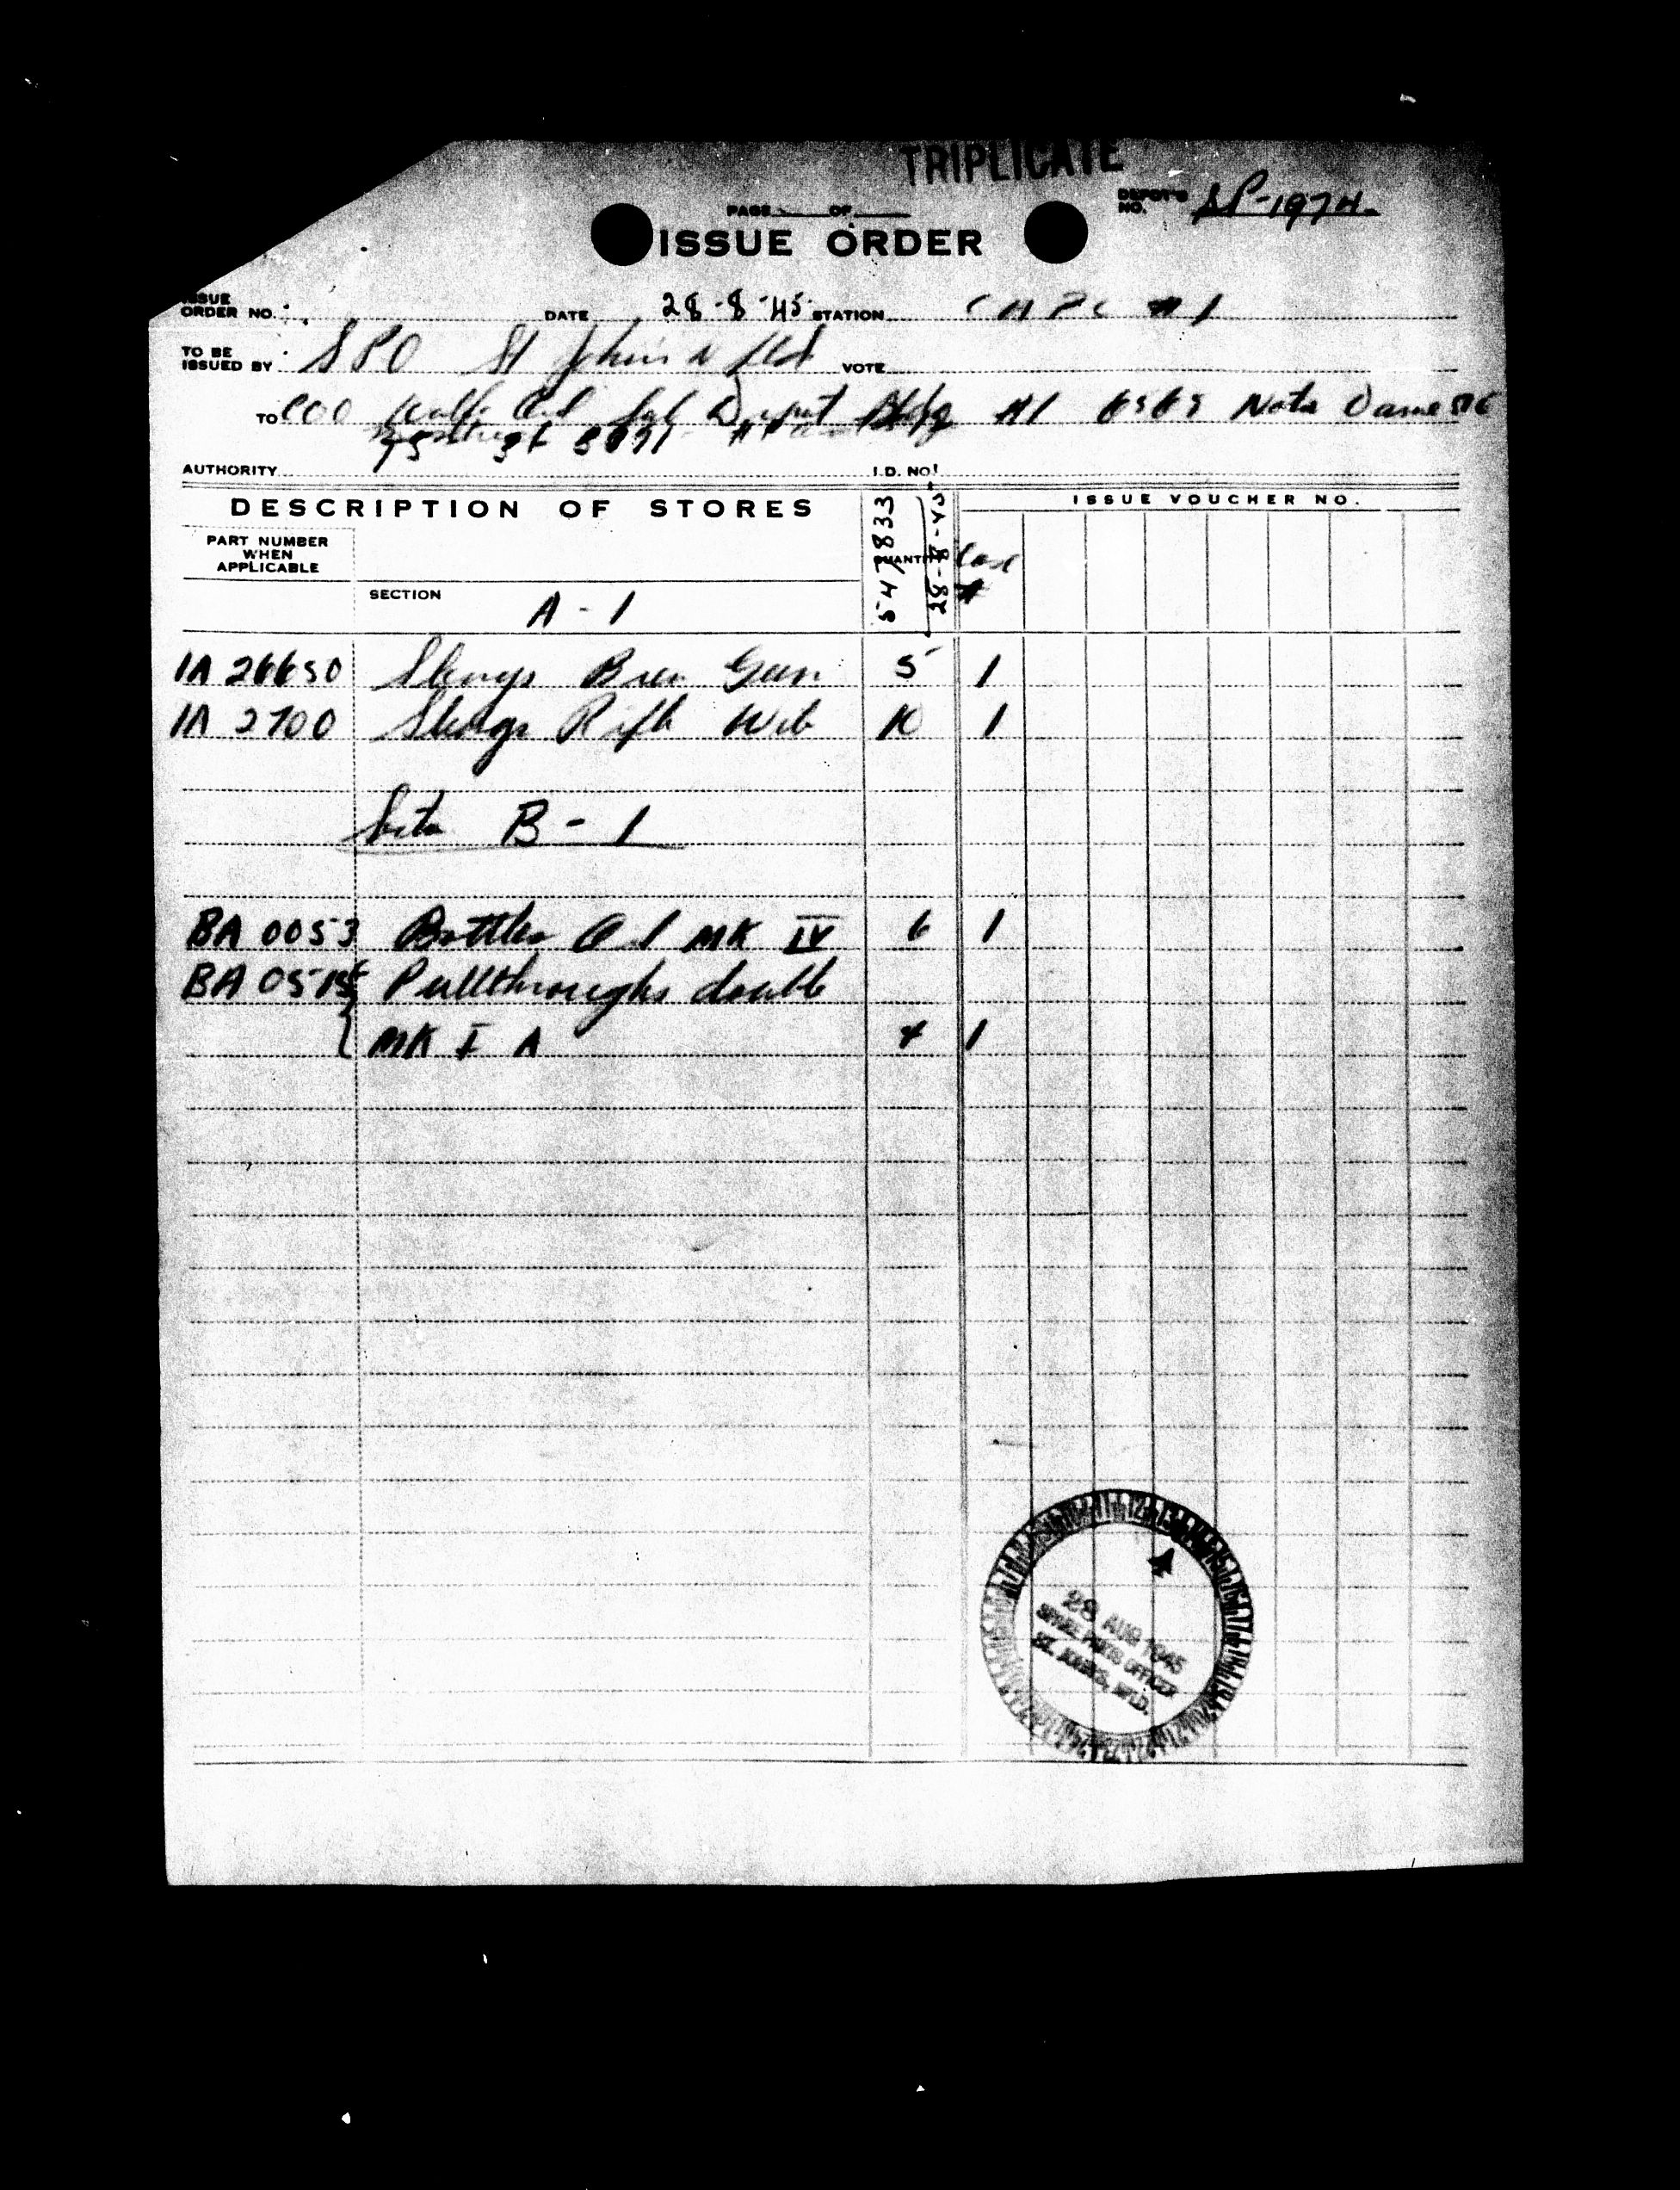 TRIPLICATE
DEPOT'S NO. SP-1974
PAGE OF
ISSUE ORDER
ISSUE ORDER NO. DATE 28-8-45 STATION #1
TO BE ISSUED BY SPO St Johns Nfld VOTE
TO COO Depot Bldg #1 Notre Dame St
AUTHORITY I.D. NO.
DESCRIPTION OF STORES
ISSUE VOUCHER NO.
PART NUMBER WHEN APPLICABLE
QUANTITY
547833
28-8-45
Case #
SECTION A-1
1A 26650 Slings Bren Gun 5 1
1A 2700 Slings Rifle Web 10 1
B-1
BA 0053 Bottles Oil MK IV 6 1
BA Pullthroughs double
MK I A 4 1
28 AUG 1945
SPARE PARTS OFFICER
ST. JOHN'S, NFLD.